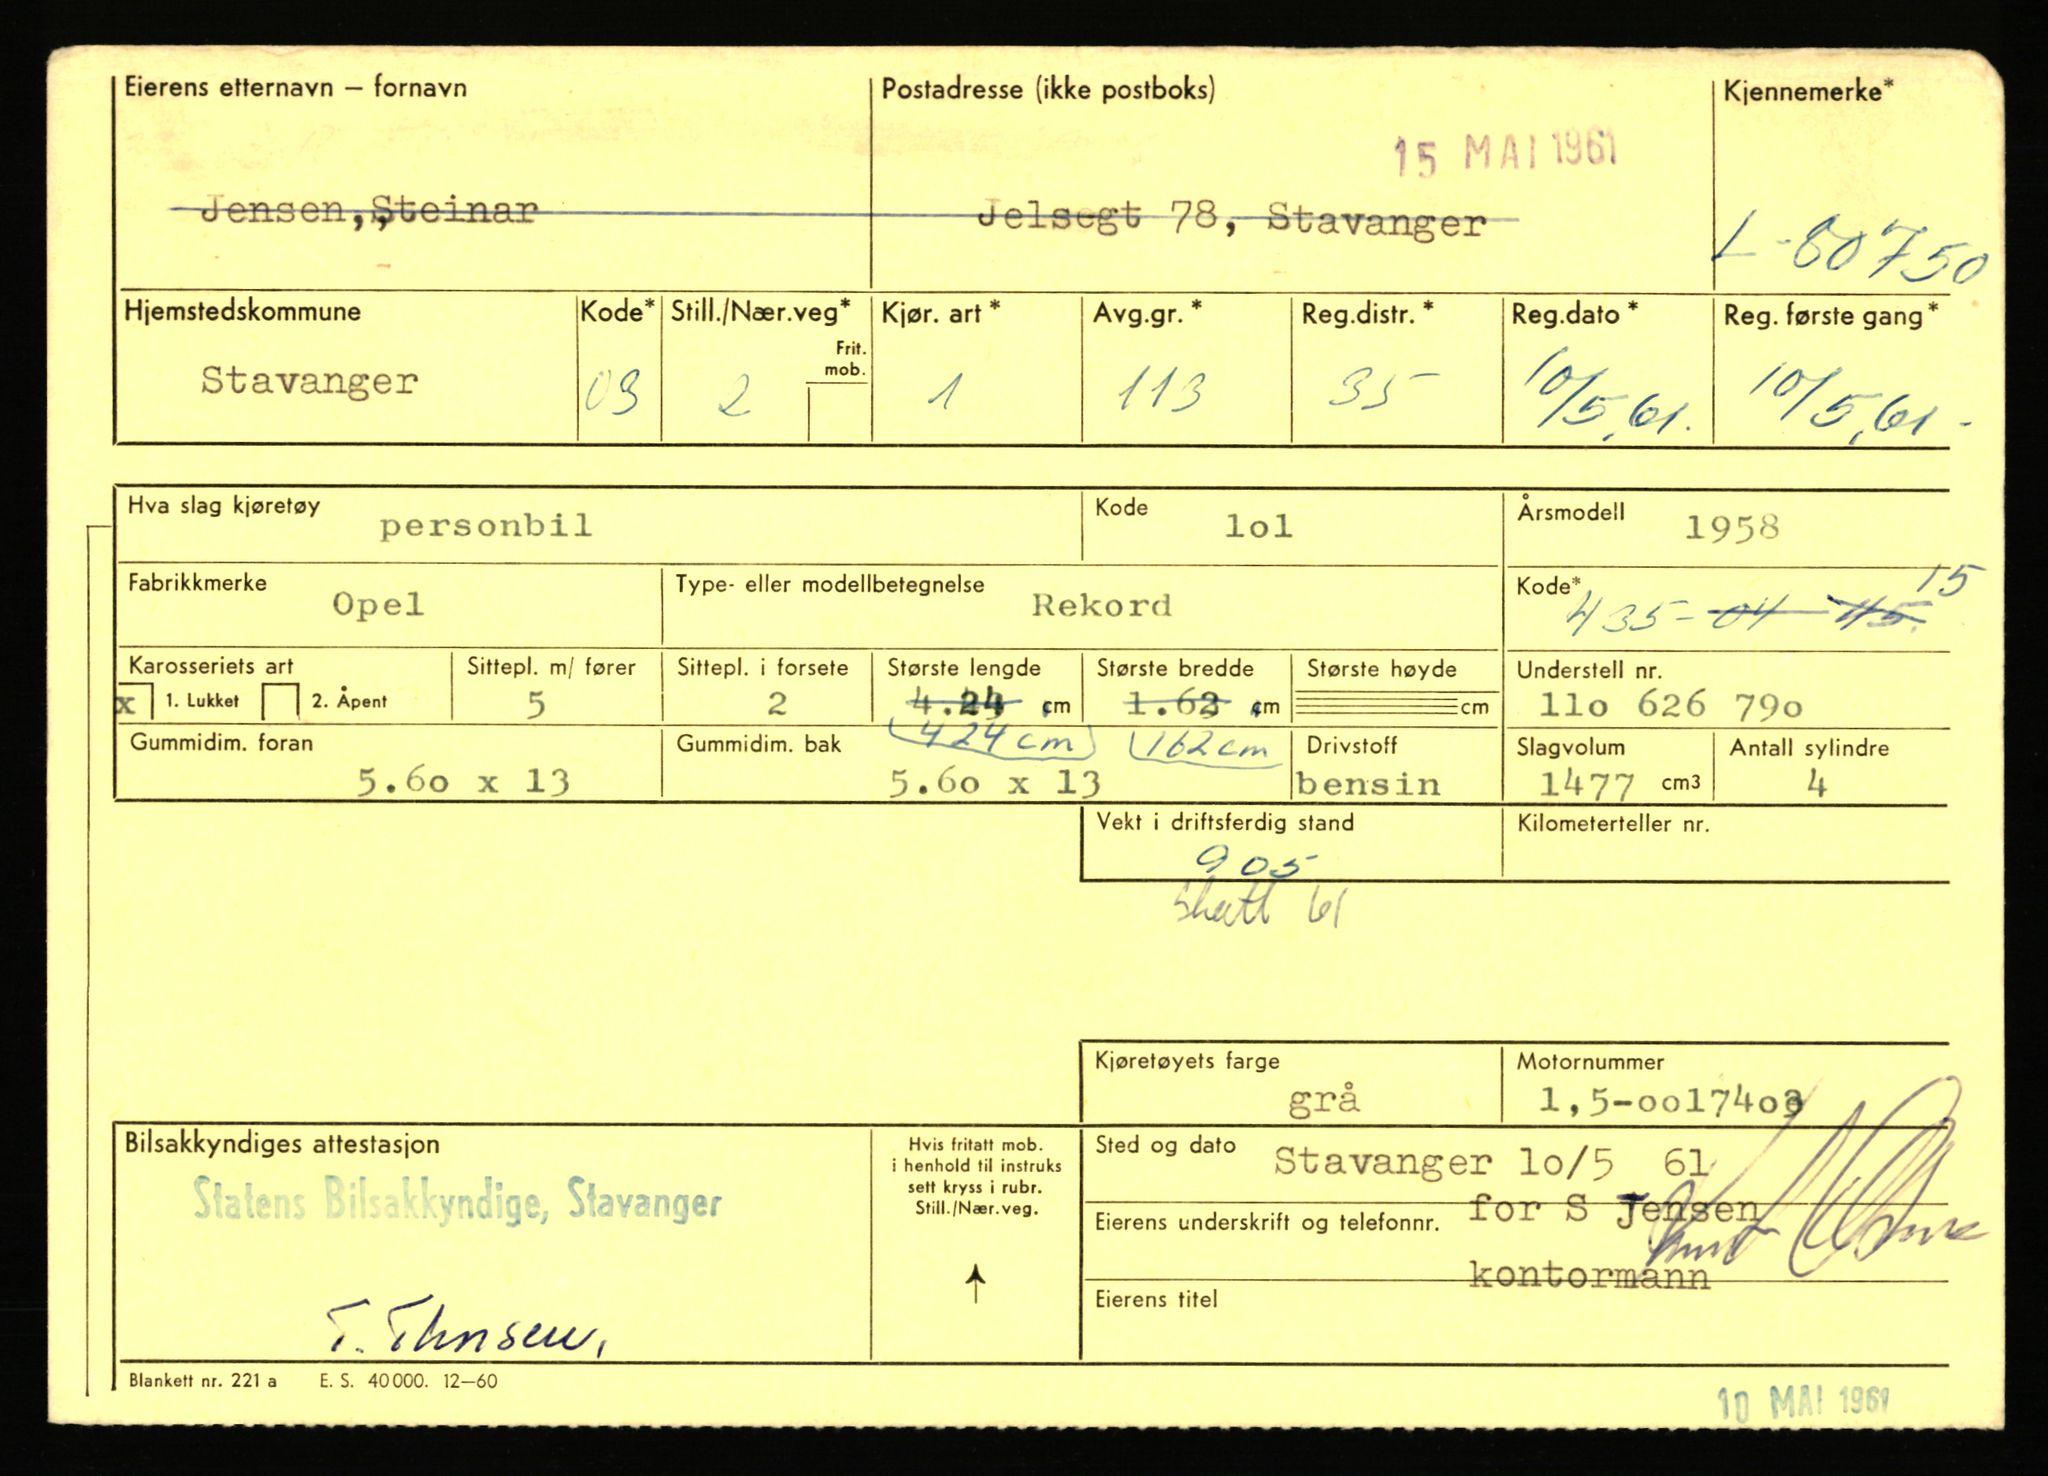 Eierens etternavn – fornavn Postadresse (ikke postboks) Kjennemerke*
15 MAI 1961
Jensen, Steinar Jelsegt 78, Stavanger L-80750
Hjemstedskommune Kode* Still./Nær.veg* Kjør. art * Avg.gr. * Reg.distr. * Reg.dato * Reg. første gang *
Frit. mob.
Stavanger 03 2 1 113 35 10/5.61. 10/5.61.-
Hva slag kjøretøy personbil Kode 1o1 Årsmodell 1958
Fabrikkmerke Opel Type- eller modellbetegnelse Rekord Kode* 435-04 45. 15
Karosseriets art Sittepl. m/ fører Sittepl. i forsete Største lengde Største bredde Største høyde Understell nr.
x 1. Lukket 2. Åpent 5 2 4.24 cm 1.62 cm cm 11o 626 79o
424 cm 162 cm
Gummidim. foran Gummidim. bak Drivstoff Slagvolum Antall sylindre
5.6o x 13 5.6o x 13 bensin 1477 cm3 4
Vekt i driftsferdig stand Kilometerteller nr.
905
Skatt 61
Kjøretøyets farge Motornummer
grå 1,5-oo174o3
Bilsakkyndiges attestasjon Hvis fritatt mob. i henhold til instruks sett kryss i rubr. Still./Nær.veg. Sted og dato Stavanger 1o/5 61
Statens Bilsakkyndige, Stavanger
Eierens underskrift og telefonnr. for S Jensen
kontormann
Eierens titel
T.
Blankett nr. 221 a E. S. 40 000. 12–60
10 MAI 1961